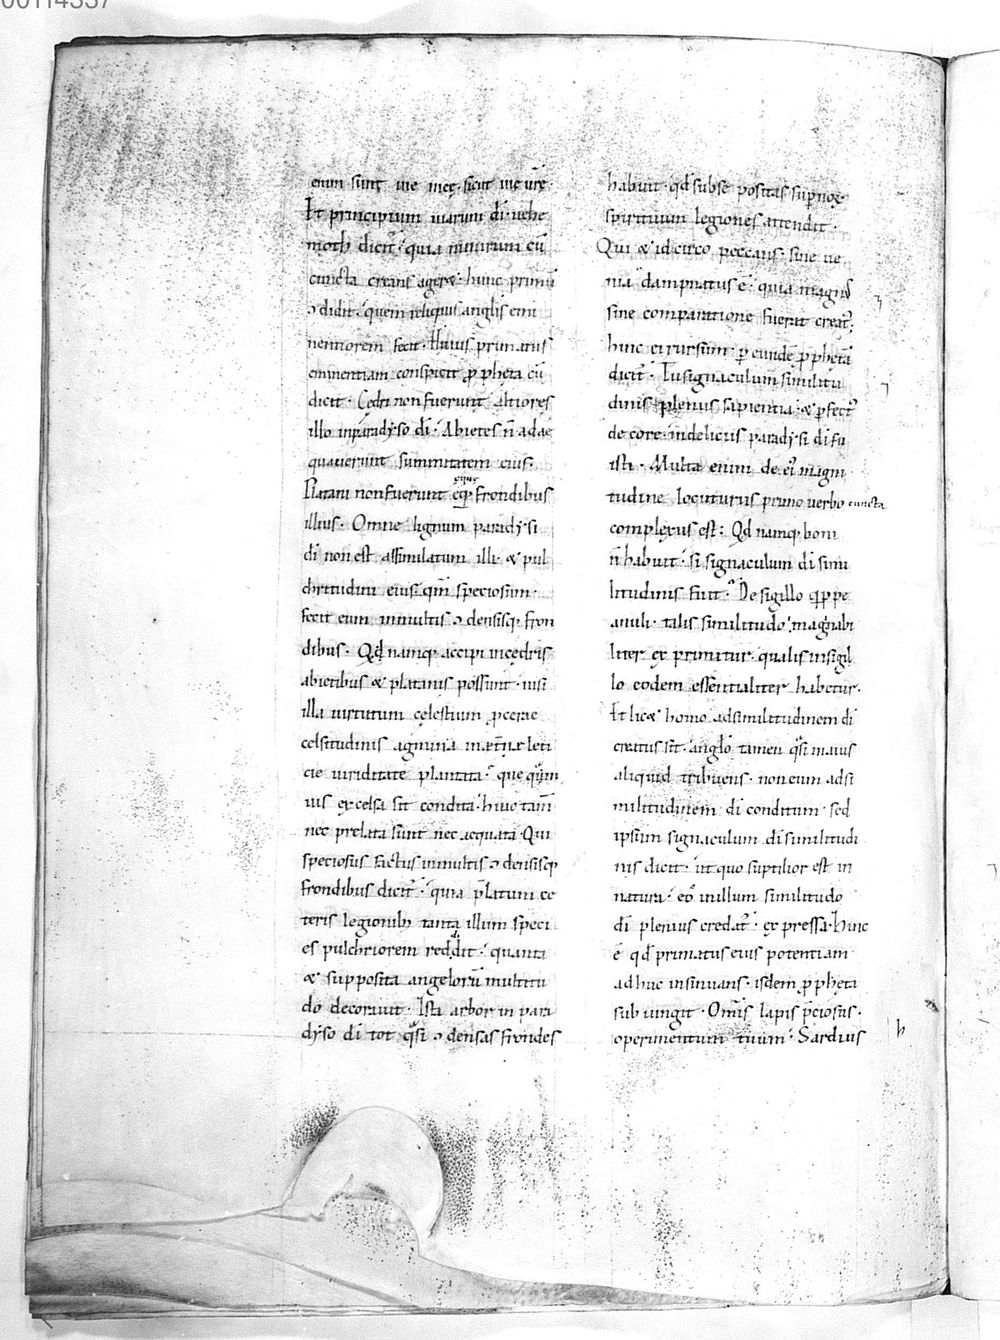 00114337
enim sunt uie meę. sicut uię ur̄e.
Et principium uiarum dī. uehe
moth dicit̄. quia nimirum cū
cuncta creans ageret. hunc primū
ↄdidit. quem reliquis angłis emi
nentiorem fecit. Huius primatus
eminentiam conspicit ꝓpheta cū
dicit. Cedri non fuerunt altiores
illo inparadyso dī. Abietes ñ adae
quauerunt summitatem eius.
Platani non fuerunt eq̄ frondibus
illius. Omne lignum paradysi
dī non est assimilatum illi. & pul
chritudini eius. qm̄ speciosum
fecit eum inmultis ↄdensisq; fron
dibus. Qd̄ namq; accipi incedris
abietibus & platanis possunt. nisi
illa uirtutum cęlestium ꝓcerae
celsitudinis agmina inęternę leti
cie uiriditate plantata. que quā
uis excelsa sit condita. huic tam̄
nec prelata sunt nec aequata. Qui
speciosus factus inmultis ↄdensisq;
frondibus dicit̄. quia p̄latum ce
teris legionib; tanta illum speci
es pulchriorem reddit. quanta
& supposita angelorū multitu
do decorauit. Ista arbor in para
dyso dī tot q̄si ↄdensas frondes
habuit. qd̄ subse positas supnor̄
spirituum legiones attendit.
Qui & idcirco peccans. sine ue
nia dampnatus ē. quia magn̄
sine comparatione fuerat creat̄.
hinc ei rursum. ꝑ eundē ꝓphetā
dicit̄. Tu signaculum similitu
dinis plenus sapientia. & ꝑfect̄
decore. indeliciis paradysi dī fu
isti. Multa enim de ei᾽ magni
tudine locuturus primo uerbo cuncta
complexus est. Qd̄ namq; boni
ñ habuit. si signaculum dī simi
litudinis fuit. De sigillo q̄ppe
anuli. talis similitudo. imaginabi
liter exprimitur. qualis insigil
lo eodem essentialiter habetur.
Et licet homo adsimilitudinem dī
creatus sit. angło tamen q̄si maius
aliquid tribuens. non eum adsi
militudinem dī conditum. sed
ipsum signaculum dī similitudi
nis dicit. ut quo suptilior est in
natura. eo inillum similitudo
dī plenius credat̄. expressa. hinc
ē qd̄ primatus eius potentiam
adhuc insinuans. isdem ꝓpheta
subiungit. Omīs lapis p̄ciosus.
operimentum tuum. Sardius